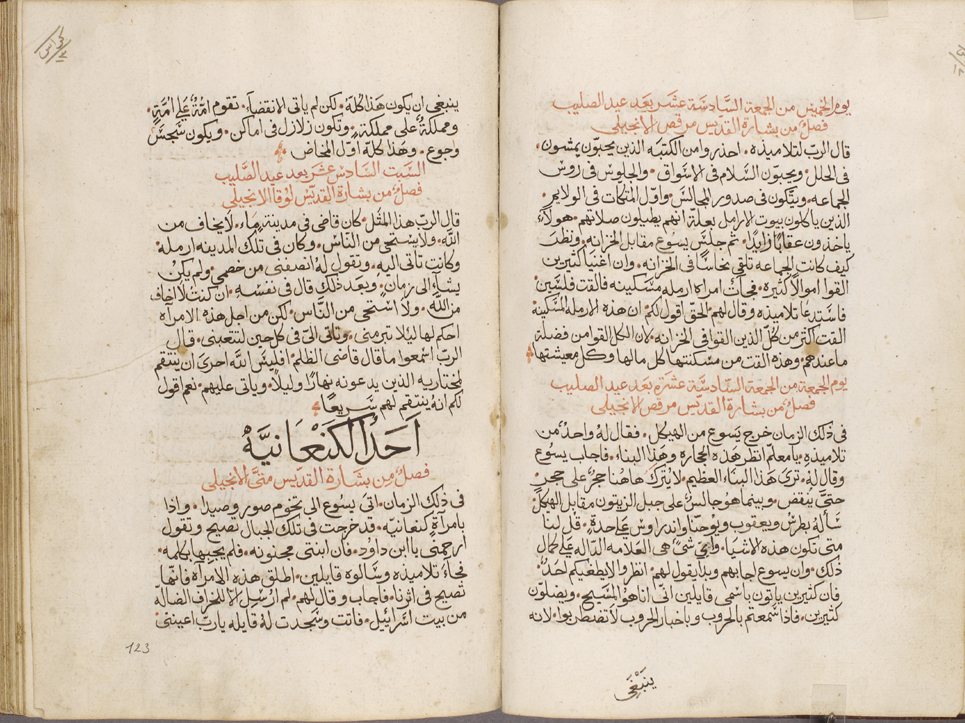 يوم الخميس من الجمعة السادسة عشر بعد عيد الصليب
فصل من بشارة القديس مرقص الانجيلي
قال الرب لتلاميذه. احذروا من الكتبه الذين يحبون يمشون
في الحلل. ويحبون السلام في الاسواق. والجلوس في روس
الجماعه. ويتكون في صدور المجالس. واول المتكات في الولايم.
الذين ياكلون بيوت الارامل بعلة انهم يطيلون صلاتهم. هولاء
ياخذون عقابا زايدا. ثم جلس يسوع مقابل الخزانه. ونظر
كيف كانت الجماعه تلقي نحاسا في الخزانه. وان اغنيا كثيرين
القوا اموالا كثيره. فجات امراه ارمله مسكينه فالقت فلسين.
فاستدعا تلاميذه وقال لهم الحق اقول لكم ان هذه الارمله المسكينه
القت اكثر من كل الذين القوا في الخزانه. لان الكل القوا من فضلة
ما عندهم. وهذه القت من مسكنتها كل مالها وكل معيشتها
يوم الجمعة من الجمعة السادسة عشرة بعد عيد الصليب
فصل من بشارة القديس مرقص الانجيلي
في ذلك الزمان خرج يسوع من الهيكل. فقال له واحد من
تلاميذه يا معلم انظر هذه الحجاره وهذا البناء. فاجاب يسوع
وقال له. ترى هذا البناء العظيم. لا يترك هاهنا حجر على حجر
حتى ينقض. وبينما هو جالس على جبل الزيتون مقابل الهيكل
سأله بطرس ويعقوب ويوحنا واندراوس على حدة. قل لنا
متى تكون هذه الاشيا. واي شي هي العلامه الداله على كمال
ذلك. وان يسوع اجابهم وبدا يقول لهم. انظروا لا يطغيكم احد.
فان كثيرين ياتون باسمي قايلين اني انا هو المسيح. ويضلون
كثيرين. فاذا سمعتم بالحروب وباخبار الحروب لا تضطربوا. لانه
ينبغي
ينبغي ان يكون هذا كله. لكن لم ياتي الانقضا. تقوم امة على امة.
ومملكة على مملكة. وتكون زلازل في اماكن. ويكون سجس
وجوع. وهذا كله اول المخاض
السبت السادس عشر بعد عيد الصليب
فصل من بشارة القديس لوقا الانجيلي
قال الرب هذا المثل. كان قاضي في مدينة ما. لا يخاف من
الله. ولا يستحي من الناس. وكان في تلك المدينه ارمله.
وكانت تأتي اليه. وتقول له انصفني من خصمي. ولم يكن
يشأ الى زمان. وبعد ذلك قال في نفسه. ان كنت لا اخاف
من الله. ولا استحي من الناس. لكن من اجل هذه الامراه
احكم لها ليلا تبرمني. وتاتي الي في كل حين لتتعبني. قال
الرب اسمعوا ما قال قاضي الظلم. فليس الله احرى ان ينتقم
لمختاريه الذين يدعونه نهارا وليلا. وياتى عليهم. نعم اقول
لكم انه ينتقم لهم سريعا
احد الكنعانيه
فصل من بشارة القديس متى الانجيلي
في ذلك الزمان. اتى يسوع الى تخوم صور وصيدا. واذا
بامرأة كنعانيه. قد خرجت في تلك الجبال تصيح وتقول
ارحمني يا ابن داود. فان ابنتي مجنونه. فلم يجيبها بكلمه.
فجاء تلاميذه وسالوه قايلين. اطلق هذه الامراه فانها
تصيح في اثرنا. فاجاب وقال لهم. لم ارسل الا للخراف الضاله
من بيت اسرائيل. فاتت وسجدت له قايله يا رب اعينني.
123